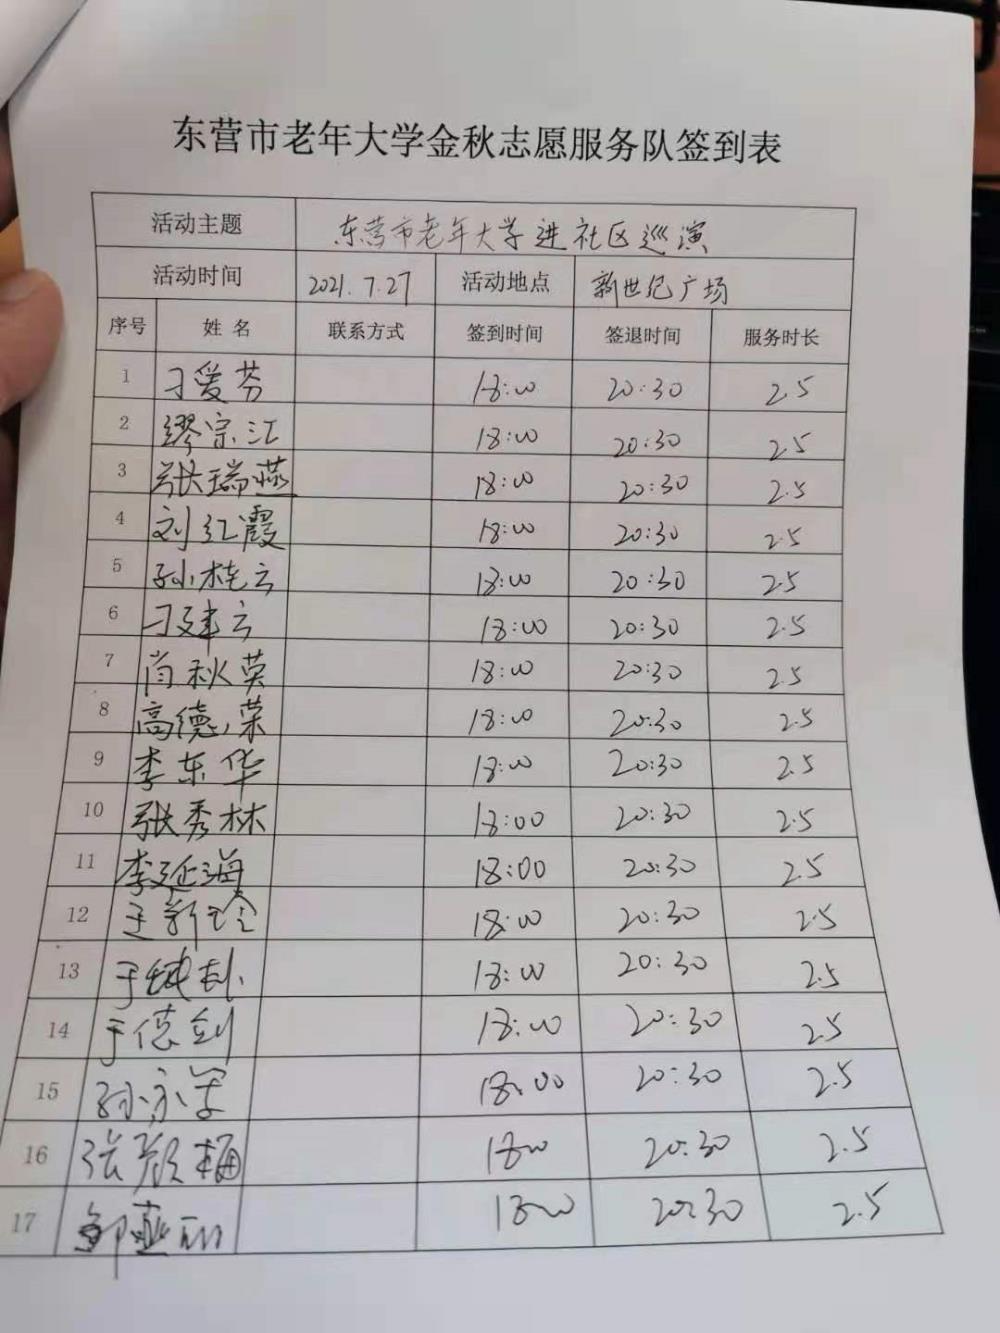 东营市老年大学金秋志愿服务队签到表
活动主题 东营市老年大学进社区巡演
活动时间 2021.7.27 活动地点 新世纪广场
序号 姓名 联系方式 签到时间 签退时间 服务时长
1 刁爱芬 18:00 20:30 2.5
2 缪宗江 18:00 20:30 2.5
3 张瑞燕 18:00 20:30 2.5
4 刘红霞 18:00 20:30 2.5
5 孙桂云 18:00 20:30 2.5
6 刁建云 18:00 20:30 2.5
7 肖秋英 18:00 20:30 2.5
8 高德荣 18:00 20:30 2.5
9 李东华 18:00 20:30 2.5
10 张秀林 18:00 20:30 2.5
11 李延海 18:00 20:30 2.5
12 王新玲 18:00 20:30 2.5
13 18:00 20:30 2.5
14 于德剑 18:00 20:30 2.5
15 孙永军 18:00 20:30 2.5
16 张颜梅 1800 20:30 2.5
17 1800 20:30 2.5